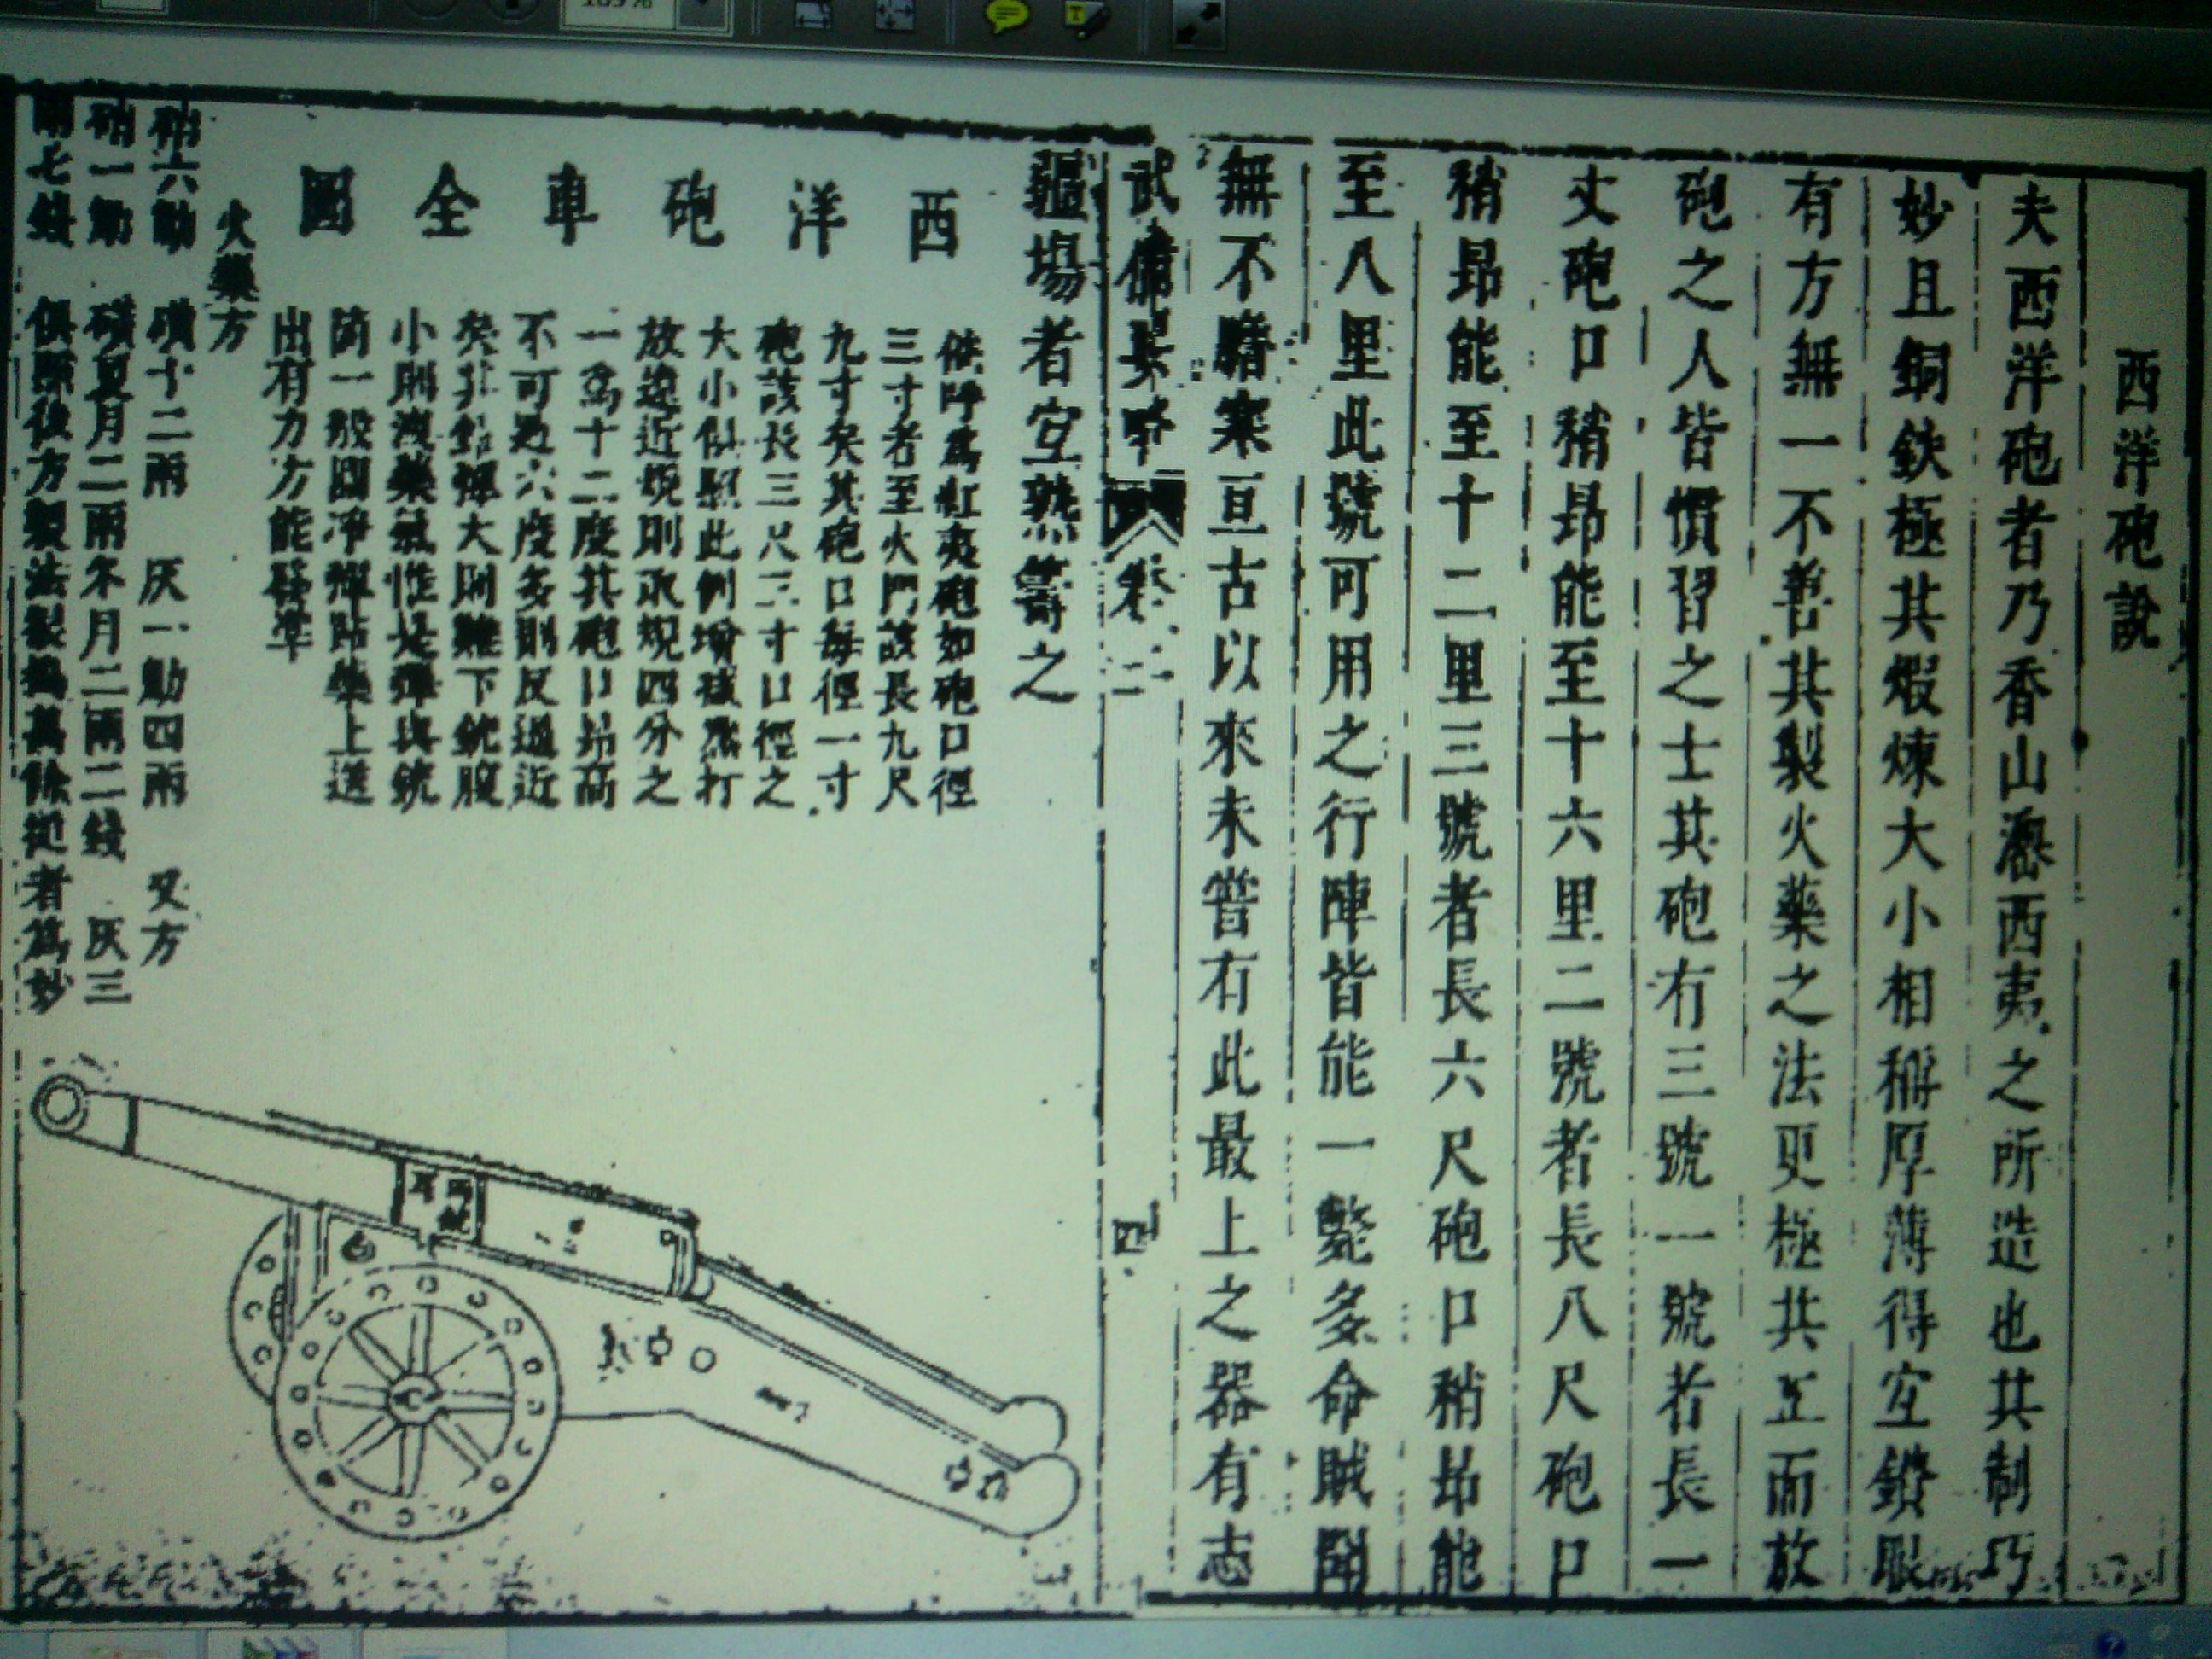 西洋砲說
夫西洋砲者乃香山澳西夷之所造也其制巧
妙且銅鉄極其煆煉大小相稱厚薄得宜鑽眼
有方無一不善其製火藥之法更極其工而放
砲之人皆慣習之士其砲有三號一號者長一
丈砲口稍昻能至十六里二號者長八尺砲口
稍昻能至十二里三號者長六尺砲口稍昻能
至八里此號可用之行陣皆能一斃多命賊聞
無不膽寒亘古以來未嘗有此最上之器有志
武備 卷二 四
疆場者宜熟籌之
西洋砲車全圖
俗呼為紅夷砲如砲口徑
三寸者至火門該長九尺
九寸矣其砲口每徑一寸
砲該長三尺三寸口徑之
大小俱照此例增減然打
放遠近規則取規四分之
一為十二度其砲口昻高
不可過六度多則反過近
矣其鉛彈大則難下銃腹
小則洩藥氣惟是彈與銃
筒一般圓淨彈貼藥上送
出有力方能發準
火藥方
硝六觔 磺十二兩 灰一觔四兩 又方
硝一觔 磺夏月二兩冬月二兩二錢 灰三
兩七錢 俱照後方製法製搗萬餘從者為妙